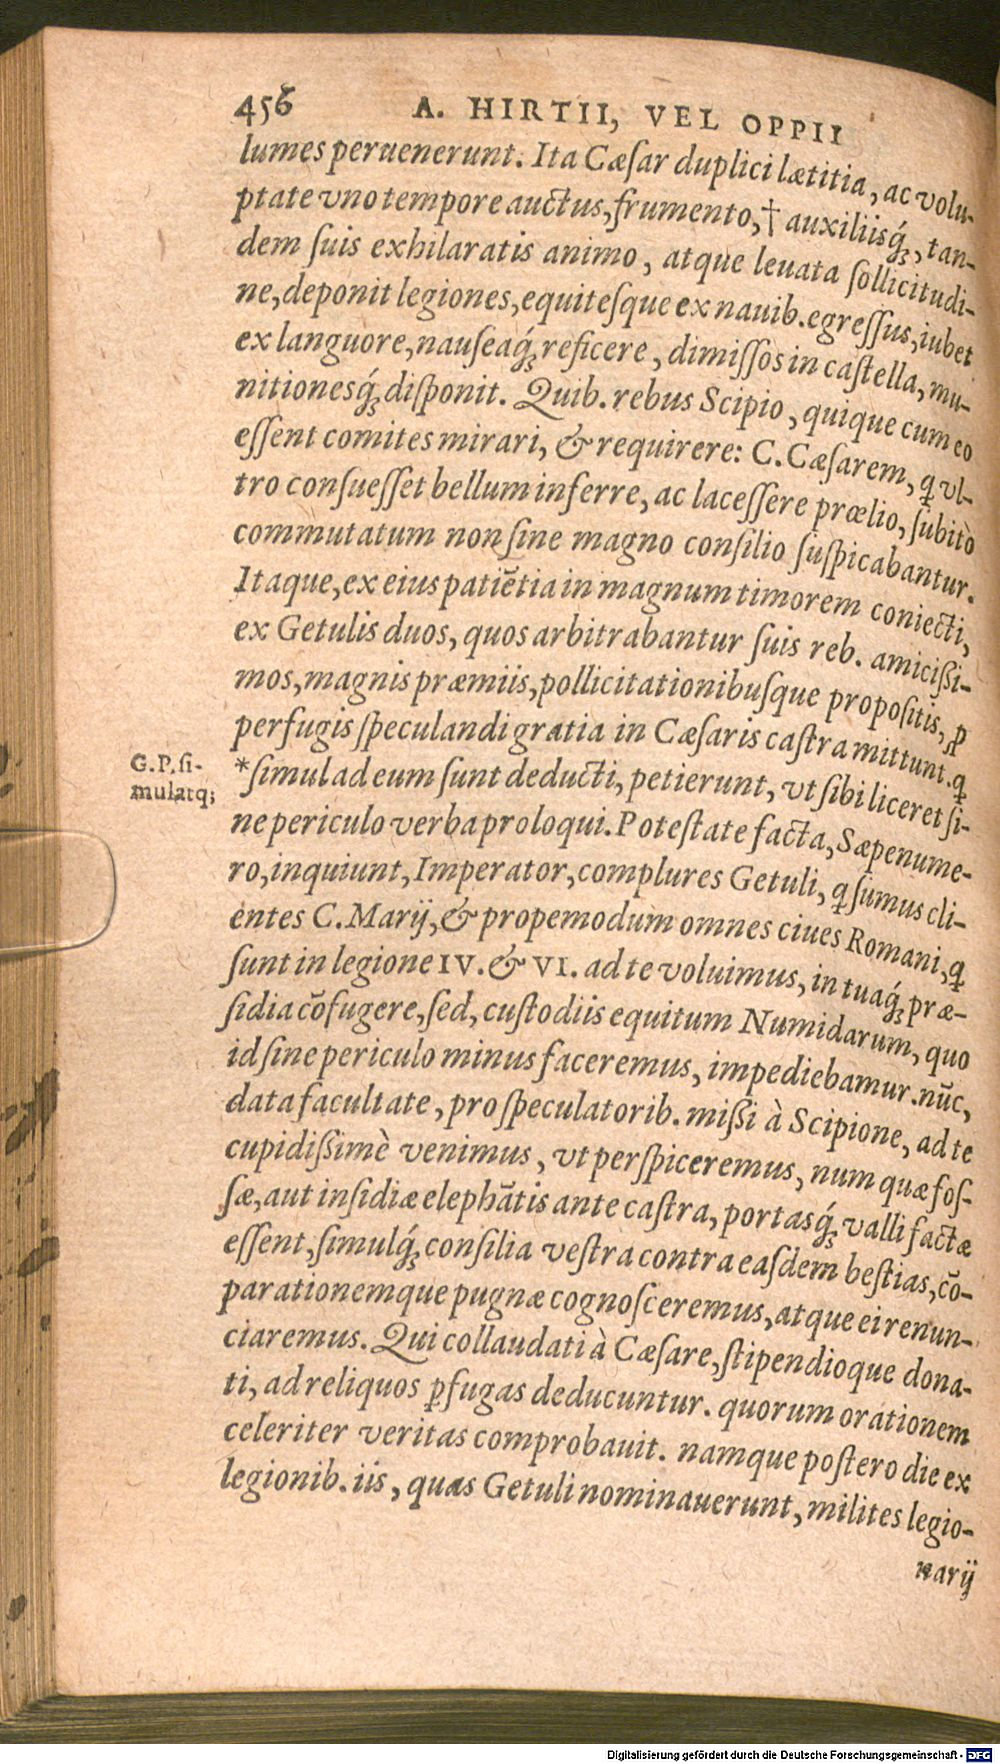 456 A. HIRTII, VEL OPPII
lumes peruenerunt. Ita Cæſar duplici lætitia, ac volu-
ptate vno tempore auctus, frumento, † auxiliisq́;, tan-
dem ſuis exhilaratis animo, atque leuata ſollicitudi-
ne, deponit legiones, equiteſque ex nauib. egreſſus, iubet
ex languore, nauſeaq́; reficere, dimiſſos in caſtella, mu-
nitionesq́; diſponit. Quib. rebus Scipio, quique cum eo
eſſent comites mirari, & requirere: C. Cæſarem, ꝗ vl-
tro conſueſſet bellum inferre, ac laceſſere prœlio, ſubitò
commutatum non ſine magno conſilio ſuſpicabantur.
Itaque, ex eius patiẽtia in magnum timorem coniecti,
ex Getulis duos, quos arbitrabantur ſuis reb. amiciſſi-
mos, magnis præmiis, pollicitationibuſque propoſitis, ꝓ
perfugis ſpeculandi gratia in Cæſaris caſtra mittunt. ꝗ
*ſimul ad eum ſunt deducti, petierunt, vt ſibi liceret ſi-
G.P. ſi-
mulatq;
ne periculo verba proloqui. Poteſtate facta, Sæpenume-
ro, inquiunt, Imperator, complures Getuli, ꝗ ſumus cli-
entes C. Marij, & propemodum omnes ciues Romani, ꝗ
ſunt in legione IV. & VI. ad te voluimus, in tuaq́; præ-
ſidia cõfugere, ſed, cuſtodiis equitum Numidarum, quo
id ſine periculo minus faceremus, impediebamur. nũc,
data facultate, pro ſpeculatorib. miſſi à Scipione, ad te
cupidiſſimè venimus, vt perſpiceremus, num quæ foſ-
ſæ, aut inſidiæ elephãtis ante caſtra, portasq́; valli factæ
eſſent, ſimulq́; conſilia veſtra contra eaſdem beſtias, cõ-
parationemque pugnæ cognoſceremus, atque ei renun-
ciaremus. Qui collaudati à Cæſare, ſtipendioque dona-
ti, ad reliquos ꝑfugas deducuntur. quorum orationem
celeriter veritas comprobauit. namque poſtero die ex
legionib. iis, quas Getuli nominauerunt, milites legio-
narij
Digitalisierung gefördert durch die Deutsche Forschungsgemeinschaft - DFG